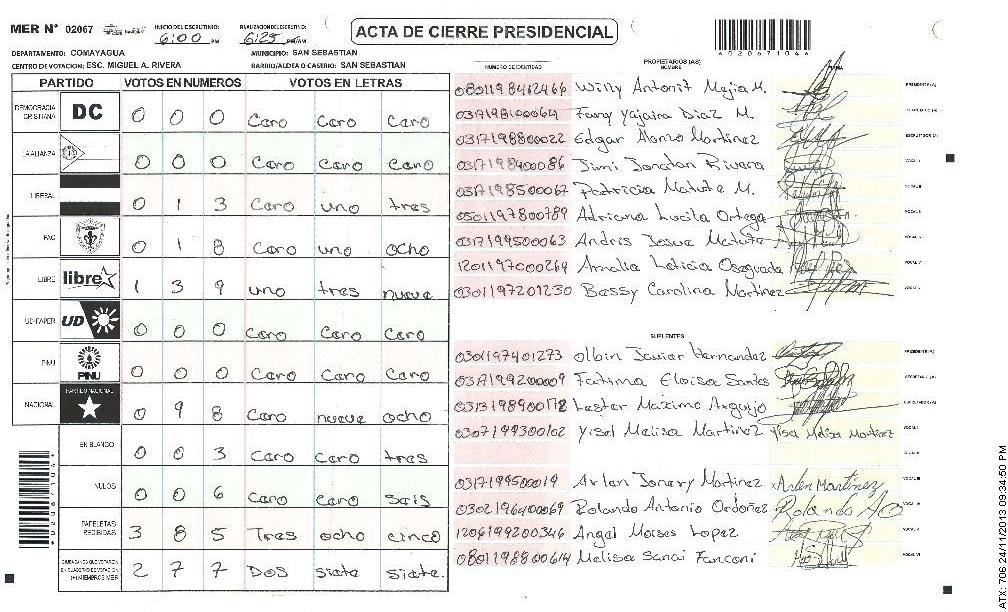 MER Nº 02067
INICIO DEL ESCRUTINIO: 6:00 PM
FINALIZACION DEL ESCRUTINIO: 6:25 PM/AM
ACTA DE CIERRE PRESIDENCIAL
DEPARTAMENTO: COMAYAGUA
MUNICIPIO: SAN SEBASTIAN
CENTRO DE VOTACION: ESC. MIGUEL A. RIVERA
BARRIO/ALDEA O CASERIO: SAN SEBASTIAN
PARTIDO VOTOS EN NUMEROS VOTOS EN LETRAS
DEMOCRACIA CRISTIANA DC 0 0 0 Cero Cero Cero
LA ALIANZA 0 0 0 Cero Cero Cero
LIBERAL 0 1 3 Cero uno tres
PAC 0 1 8 Cero uno ocho
LIBRE libre 1 3 9 uno tres nueve
UD-FAPER UD 0 0 0 Cero Cero Cero
PINU PINU 0 0 0 Cero Cero Cero
NACIONAL PARTIDO NACIONAL 0 9 8 Cero nueve ocho
EN BLANCO 0 0 3 Cero Cero tres
NULOS 0 0 6 Cero Cero Seis
PAPELETAS RECIBIDAS 3 8 5 Tres ocho cinco
CIUDADANOS QUE VOTARON EN CUADERNO DE VOTACION (+) MIEMBROS MER 2 7 7 DOS siete siete.
PROPIETARIOS (AS)
NUMERO DE IDENTIDAD NOMBRE FIRMA
0801198462466 Willy Antonit Mejia M. PRESIDENTE (A)
0317198100064 Fany Yajaira Diaz M. SECRETARIO (A)
0317198800022 Edgar Alonso Martinez ESCRUTADOR (A)
0317198400086 Jimi Jonatan Rivera VOCAL I
0317198500067 Patricia Matute M. VOCAL II
0501197800789 Adriana Lucila Ortega VOCAL III
0317199500063 Andris Josue Matute VOCAL IV
1201197000269 Amalia Leticia Oseguada VOCAL V
0301197201230 Bessy Carolina Martinez
SUPLENTES
0301197401273 Olbin Javier Hernandez PRESIDENTE (A)
0317199200009 Fatima Eloisa Santos SECRETARIO (A)
0313198900178 Lester Maximo Arguijo ESCRUTADOR (A)
0307199300102 Yisel Melisa Martinez Yisel Melisa Martinez VOCAL I
VOCAL II
0317199500019 Arlen Jonery Martinez Arlen Martinez VOCAL III
0302196400069 Rolando Antonio Ordoñez Rolando A O
1206199200346 Angel Moises Lopez
0801198800614 Melisa Sanai Fanconi
4020671046
4020671046
ATX: 706 24/11/2013 09:34:50 PM